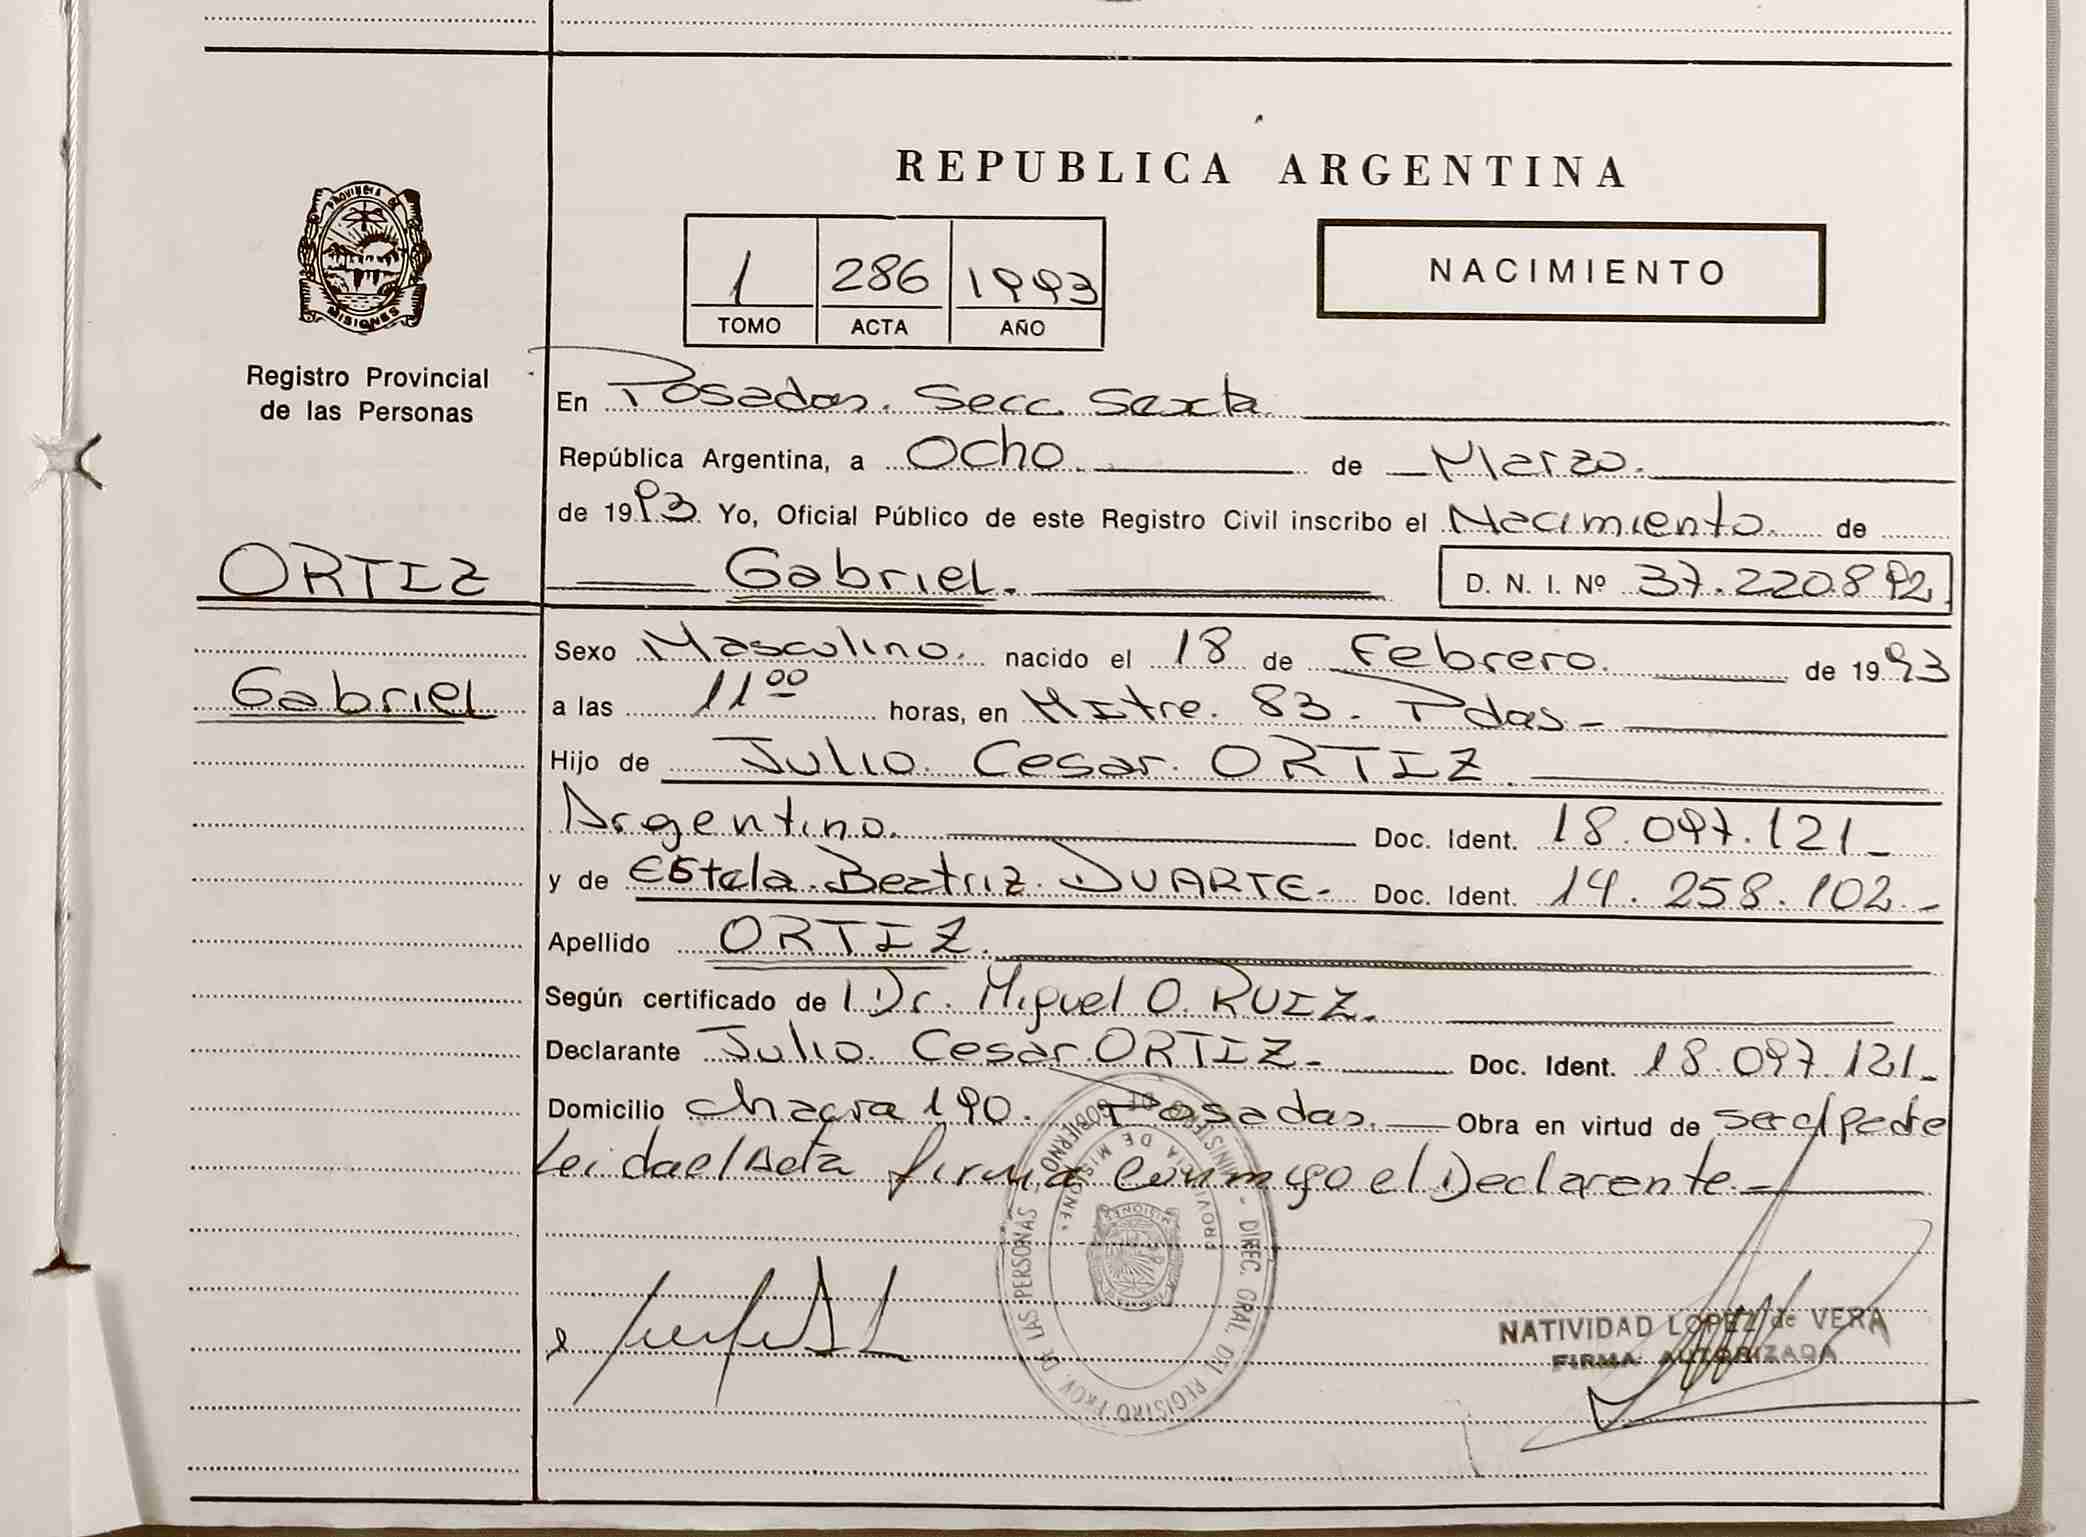 REPUBLICA ARGENTINA
PROVINCIA DE
MISIONES
Registro Provincial
de las Personas
1 286 1993
TOMO ACTA AÑO
NACIMIENTO
En Posadas. Secc. Sexta
República Argentina, a Ocho. de Marzo.
de 1993. Yo, Oficial Público de este Registro Civil inscribo el Nacimiento. de
ORTIZ
Gabriel. D. N. I. Nº 37.220.892
Sexo Masculino. nacido el 18 de Febrero. de 1993
Gabriel
a las 11 00 horas, en Mitre. 83. Pdas-
Hijo de Julio. Cesar. ORTIZ
Argentino. Doc. Ident. 18.097.121-
y de Estela. Beatriz. DUARTE- Doc. Ident. 14. 258. 102.-
Apellido ORTIZ.
Según certificado de Dr. Miguel O. RUIZ.
Declarante Julio. Cesar. ORTIZ- Doc. Ident. 18.097.121-
Domicilio chacra 190. Posadas. Obra en virtud de ser el padre
Leida el Acta firma conmigo el Declarente.-
DIREC. GRAL. DEL REGISTRO PROV. DE LAS PERSONAS - MINISTERIO DE GOBIERNO
PROVINCIA DE MISIONES
NATIVIDAD LOPEZ de VERA
FIRMA AUTORIZADA